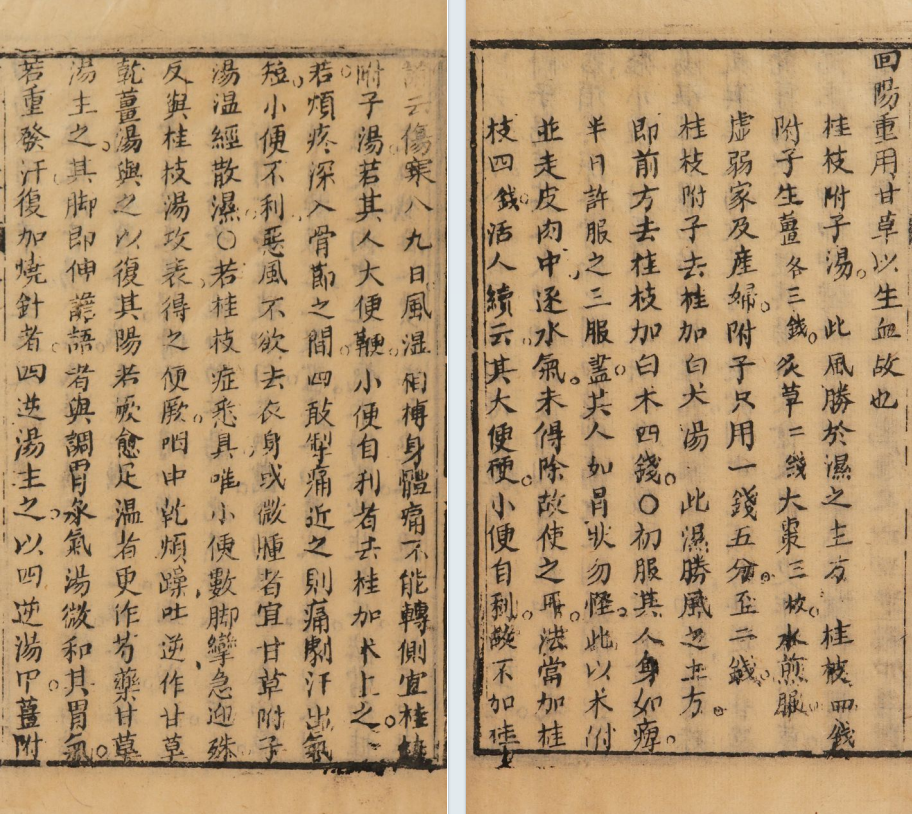 回陽重用甘草以生血故也
桂枝附子湯 此風勝於濕之主方 桂枝四錢
附子生薑各三錢炙草二錢大棗三枚水煎服
虛弱家及産婦附子只用一錢五分至二錢
桂枝附子去桂加白朮湯 此濕勝風之主方
即前方去桂枝加白朮四錢〇初服其人身如痺
半日許服之三服盡其人如冒状勿怪此以朮附
並走皮肉中逐水氣未得除故使之耳法當加桂
枝四錢活人續云其大便硬小便自利故不加桂
論云傷寒八九日風湿相搏身體痛不能轉側宜桂枝
附子湯若其人大便鞕小便自利者去桂加朮主之
若煩疼深入骨節之間四肢掣痛近之則痛劇汗出氣
短小便不利惡風不欲去衣身或微腫者宜甘草附子
湯温經散濕〇若桂枝症悉具唯小便數脚攣急迎殊
反與桂枝湯攻表得之便厥咽中乾煩躁吐逆作甘草
乾薑湯與之以復其陽若厥愈足温者更作芍藥甘草
湯主之其脚即伸譫語者與調胃承氣湯微和其胃氣
若重發汗復加燒針者四逆湯主之以四逆湯中薑附